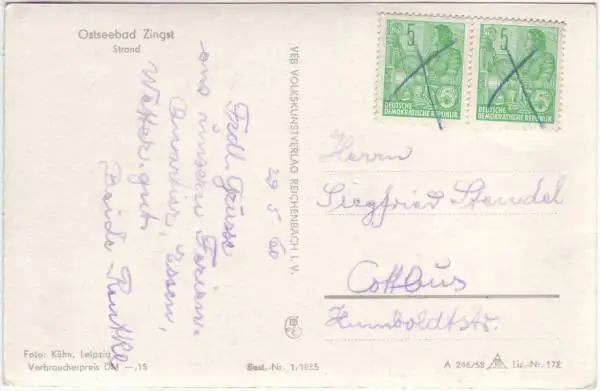 Ostseebad Zingst
Strand
29 5 60
Frdl. Grüsse
aus unsern Ferien-
Quartier, Essen,
Wetter gut
Beide
VEB VOLKSKUNSTVERLAG REICHENBACH I. V.
5
DEUTSCHE
DEMOKRATISCHE REPUBLIK
5
DEUTSCHE
DEMOKRATISCHE REPUBLIK
Herrn
Siegfried Stendel
Cottbus
Humboldtstr.
Foto: Kühn, Leipzig
Verbraucherpreis DM —,15
Best.-Nr. 1/1855
A 246/58 Liz.-Nr. 172